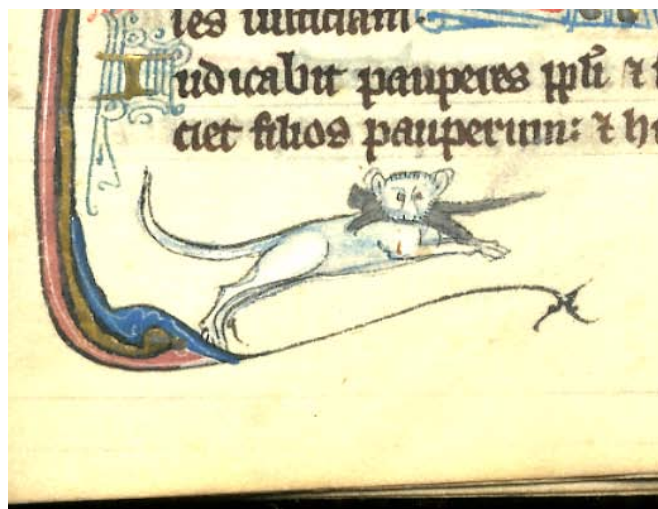 ies iusticiam·
Iudicabit pauperes ppli ⁊
ciet filios pauperum: ⁊ hu